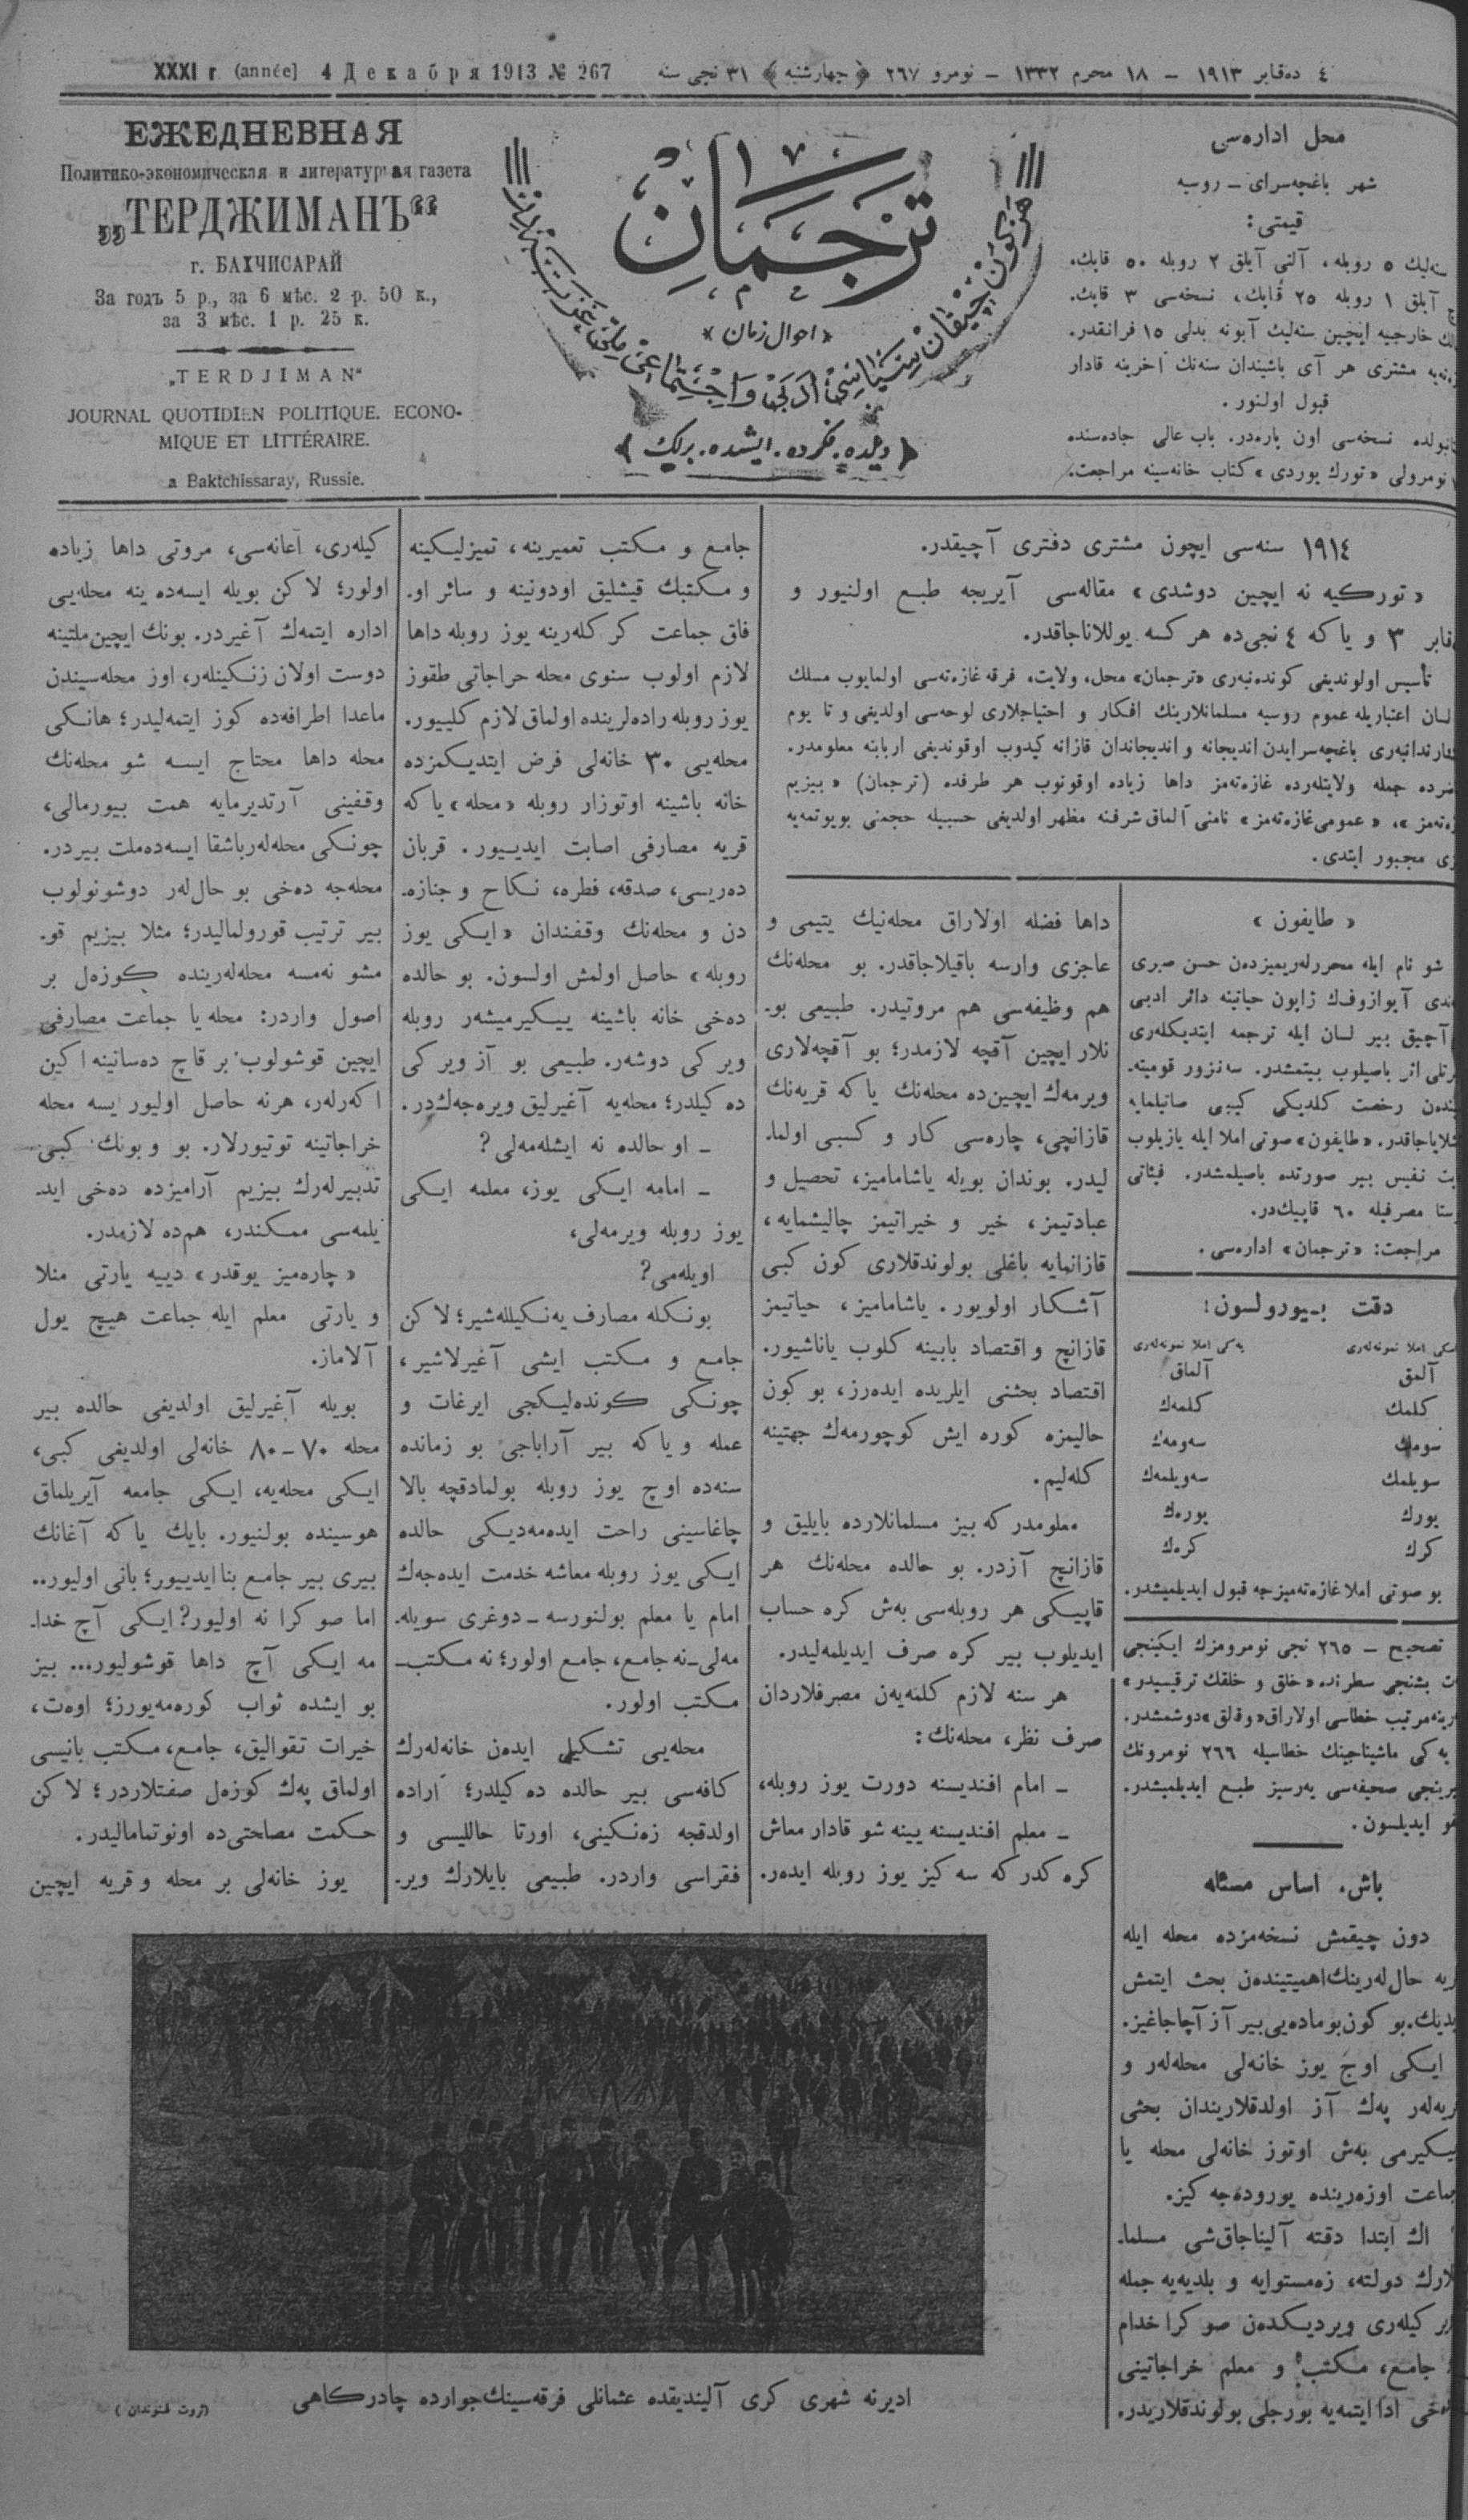 XXXI г. (année) 4 Декабря 1913 № 267
٤ دەقابر ١٩١٣ – ١٨ محرم ١٣٣٢ – نومرو ٢٦٧ ﴿چهارشنبه﴾ ٣١ نجی سنه
ЕЖЕДНЕВНАЯ
Политико-экономическая и литературная газета
„ТЕРДЖИМАНЪ“
г. БАХЧИСАРАЙ
За годъ 5 р., за 6 мѣс. 2 р. 50 к.,
за 3 мѣс. 1 р. 25 к.
„TERDJIMAN“
JOURNAL QUOTIDIEN POLITIQUE. ECONO-
MIQUE ET LITTÉRAIRE.
a Baktchissaray, Russie.
ترجمان
١٧
«احوال زمان»
﴿دیلده. فکرده. ایشده. برلك﴾
محل ادارەسی
شهر باغچەسرای – روسیه
قیمتی:
سنەلیك ٥ روبله، آلتی آیلق ٢ روبله ٥٠ قاپك.
آیلق ١ روبله ٢٥ قاپك، نسخەسی ٣ قاپك.
خارجیه ایچین سنەلیك آبونه بدلی ١٥ فرانقدر.
مشتری هر آی باشیندان سنەنك آخرینه قادار
قبول اولنور.
نسخەسی اون پارەدر. باب عالی جادەسنده
نومرولی «تورك یوردی» کتاب خانەسینه مراجعت.
١٩١٤ سنەسی ایچون مشتری دفتری آچیقدر.
«تورکیه نه ایچین دوشدی» مقالەسی آیریجه طبع اولنیور و
٣ و یا که ٤ نجیده هر کسه یوللاناجاقدر.
تأسیس اولوندیغی کوندەنبەری «ترجمان» محل، ولایت، فرقه غازەتەسی اولمایوب مسلك
لسان اعتباریله عموم روسیه مسلمانلارینك افکار و احتیاجلاری لوحەسی اولدیغی و تا یوم
باغچەسرایدن اندیجانه و اندیجاندان قازانه کیدوب اوقوندیغی اربابنه معلومدر.
جمله ولایتلەرده غازەتەمز داها زیاده اوقونوب هر طرفده (ترجمان) «بیزیم
»، «عمومی غازەتەمز» نامنی آلماق شرفنه مظهر اولدیغی حسبیله حجمنی بویوتمەیه
مجبور ایتدی.
«طایفون»
شو نام ایله محررلەریمیزدەن حسن صبری
آیوازوفك ژاپون حیاتینه دائر ادبی
آچیق بیر لسان ایله ترجمه ایتدیکلەری
اثر باصیلوب بیتمشدر. سەنزور قومیته-
رخصت کلدیکی کیبی صاتیلمایه
«طایفون» صوتی املا ایله یازیلوب
نفیس بیر صورتده باصیلمشدر. فیئاتی
مصرفیله ٦٠ قاپیكدر.
مراجعت: «ترجمان» ادارەسی.
دقت بیورولسون!
اسکی املا نمونەلەری یەکی املا نمونەلەری
آلمق آلماق
کلمك کلمەك
سومك سەومەك
سویلمك سەویلمەك
یورك یورەك
کرك کرەك
بو صوتی املا غازەتەمیزجه قبول ایدیلمیشدر.
تصحیح – ٢٦٥ نجی نومرومزك ایکینجی
بشنجی سطرنده «خلق و خلقك ترقیسیدر»
مرتیب خطاسی اولاراق «وقالق» دوشمشدر.
یەکی ماشیناجینك خطاسیله ٢٦٦ نومرونك
برینجی صحیفەسی یەرسیز طبع ایدیلمیشدر.
ایدیلسون.
باش، اساس مسئله
دون چیقمش نسخەمزده محله ایله
حال لەرینك اهمیتیندەن بحث ایتمش
بو کون بو مادەیی بیر آز آچاجاغیز.
ایکی اوچ یوز خانەلی محلەلەر و
پەك آز اولدقلاریندان بحثی
ییکیرمی بەش اوتوز خانەلی محله یا
جماعت اوزەرینده یورودەجەکیز.
اك ابتدا دقته آلیناجاق شی مسلما-
دولته، زەمستوایه و بلدیەیه جمله
ویردیکدەن صوکرا خدام
جامع، مکتب و معلم خراجاتینی
ادا ایتمەیه بورجلی بولوندقلاریدر.
داها فضله اولاراق محلەنیك یتیمی و
عاجزی وارسه باقیلاجاقدر. بو محلەنك
هم وظیفەسی هم مروتیدر. طبیعی بو-
نلار ایچین آقچه لازمدر؛ بو آقچەلاری
ویرمەك ایچین ده محلەنك یا که قریەنك
قازانچی، چارەسی کار و کسبی اولما-
لیدر. بوندان بویله یاشامامیز، تحصیل و
عبادتیمز، خیر و خیراتیمز چالیشمایه،
قازانمایه باغلی بولوندقلاری کون کبی
آشکار اولویور. یاشامامیز، حیاتیمز
قازانچ و اقتصاد بابینه کلوب یاناشیور.
اقتصاد بحثنی ایلریده ایدەرز، بو کون
حالیمزه کوره ایش کوچورمەك جهتینه
کلەلیم.
معلومدر که بیز مسلمانلارده بایلیق و
قازانچ آزدر. بو حالده محلەنك هر
قاپیکی هر روبلەسی بەش کره حساب
ایدیلوب بیر کره صرف ایدیلمەلیدر.
هر سنه لازم کلمەیەن مصرفلاردان
صرف نظر، محلەنك:
– امام افندیسنه دورت یوز روبله،
– معلم افندیسنه یینه شو قادار معاش
کرەکدر که سەکیز یوز روبله ایدەر.
جامع و مکتب تعمیرینه، تمیزلیکینه
و مکتبك قیشلیق اودونینه و سائر او-
فاق جماعت کرکلەرینه یوز روبله داها
لازم اولوب سنوی محله خراجاتی طقوز
یوز روبله رادەلرینده اولماق لازم کلییور.
محلەیی ٣٠ خانەلی فرض ایتدیکمزده
خانه باشینه اوتوزار روبله «محله» یا که
قریه مصارفی اصابت ایدییور. قربان
دەریسی، صدقه، فطره، نکاح و جنازه-
دن و محلەنك وقفندان «ایکی یوز
روبله» حاصل اولمش اولسون. بو حالده
دەخی خانه باشینه ییکیرمیشەر روبله
ویرکی دوشەر. طبیعی بو آز ویرکی
دەکیلدر؛ محلەیه آغیرلیق ویرەجەكدر.
– او حالده نه ایشلەمەلی؟
– امامه ایکی یوز، معلمه ایکی
یوز روبله ویرمەلی،
اویلەمی؟
بونکله مصارف یەنکیللەشیر؛ لاکن
جامع و مکتب ایشی آغیرلاشیر،
چونکی کوندەلیکجی ایرغات و
عمله و یا که بیر آراباجی بو زمانده
سنەده اوچ یوز روبله بولمادقچه بالا
چاغاسینی راحت ایدەمەدیکی حالده
ایکی یوز روبله معاشه خدمت ایدەجەك
امام یا معلم بولنورسه – دوغری سویله-
مەلی – نه جامع، جامع اولور؛ نه مکتب –
مکتب اولور.
محلەیی تشکیل ایدەن خانەلەرك
کافەسی بیر حالده دەکیلدر؛ آراده
اولدقجه زەنکینی، اورتا حاللیسی و
فقراسی واردر. طبیعی بایلارك ویر-
کیلەری، اعانەسی، مروتی داها زیاده
اولور؛ لاکن بویله ایسەده ینه محلەیی
اداره ایتمەك آغیردر. بونك ایچین ملتینه
دوست اولان زنکینلەر، اوز محلەسیندن
ماعدا اطرافەده کوز ایتمەلیدر؛ هانکی
محله داها محتاج ایسه شو محلەنك
وقفینی آرتدیرمایه همت بیورمالی،
چونکی محلەلەر باشقا ایسەده ملت بیردر.
محلەجه دەخی بو حاللەر دوشونولوب
بیر ترتیب قورولمالیدر؛ مثلا بیزیم قو-
مشو نەمسه محلەلەرینده کوزەل بر
اصول واردر: محله یا جماعت مصارفی
ایچین قوشولوب بر قاچ دەساتینه اکین
اکەرلەر، هرنه حاصل اولیور ایسه محله
خراجاتینه توتیورلار. بو و بونك کبی
تدبیرلەرك بیزیم آرامیزده دەخی اید-
یلمەسی ممکندر، هم ده لازمدر.
«چارەمیز یوقدر» دییه یارتی منلا
و یارتی معلم ایله جماعت هیچ یول
آلاماز.
بویله آغیرلیق اولدیغی حالده بیر
محله ٧٠–٨٠ خانەلی اولدیغی کبی،
ایکی محلەیه، ایکی جامعه آیریلماق
هوسینده بولنیور. بایك یا که آغانك
بیری بیر جامع بنا ایدییور؛ بانی اولیور..
اما صوکرا نه اولیور؟ ایکی آچ خدا-
مه ایکی آچ داها قوشولیور... بیز
بو ایشده ثواب کورەمەیورز؛ اوەت،
خیرات تقوالیق، جامع، مکتب بانیسی
اولماق پەك کوزەل صفتلاردر؛ لاکن
حکمت مصلحتی ده اونوتمامالیدر.
یوز خانەلی بر محله و قریه ایچین
ادیرنه شهری کری آلیندیقده عثمانلی فرقەسینك جوارده چادرکاهی
(ثروت فنوندان)